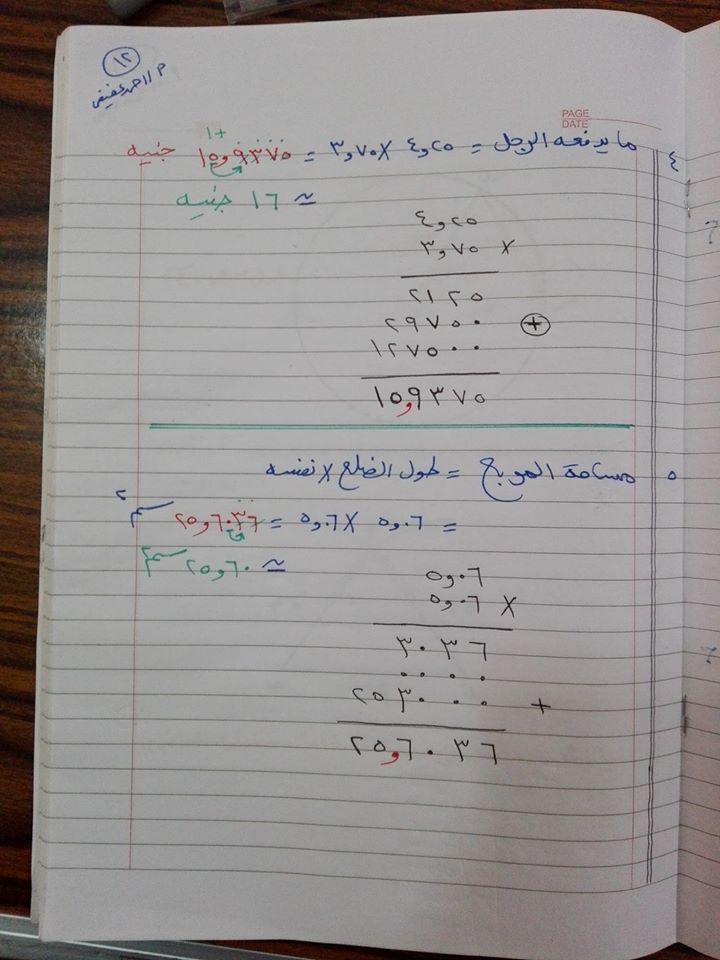 ١٢
م/ احمد عفيفي
PAGE
DATE
٤ ما يدفعه الرجل = ٤,٢٥ × ٣,٧٥ = ١٥,٩٣٧٥ جنيه
+١
≃ ١٦ جنيه
٤,٢٥
٣,٧٥ ×
٢١٢٥
٢٩٧٥٠ +
١٢٧٥٠٠
١٥,٩٣٧٥
٥ مساحة المربع = طول الضلع × نفسه
= ٥,٠٦ × ٥,٠٦ = ٢٥,٦٠٣٦ سم٢
≃ ٢٥,٦٠ سم٢
٥,٠٦
٥,٠٦ ×
٣٠٣٦
٠٠٠٠
٢٥٣٠٠٠ +
٢٥,٦٠٣٦